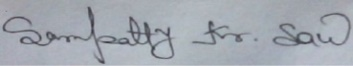 Sampatty Kr. Saw